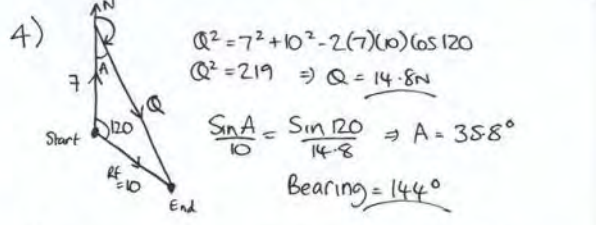 4)
N
A
7
Q
Start
120
RF
=10
End
Q² = 7² + 10² - 2(7)(10)Cos 120
Q² = 219 ⇒ Q = 14.8N
SinA/10 = Sin 120/14.8 ⇒ A = 35.8°
Bearing = 144°